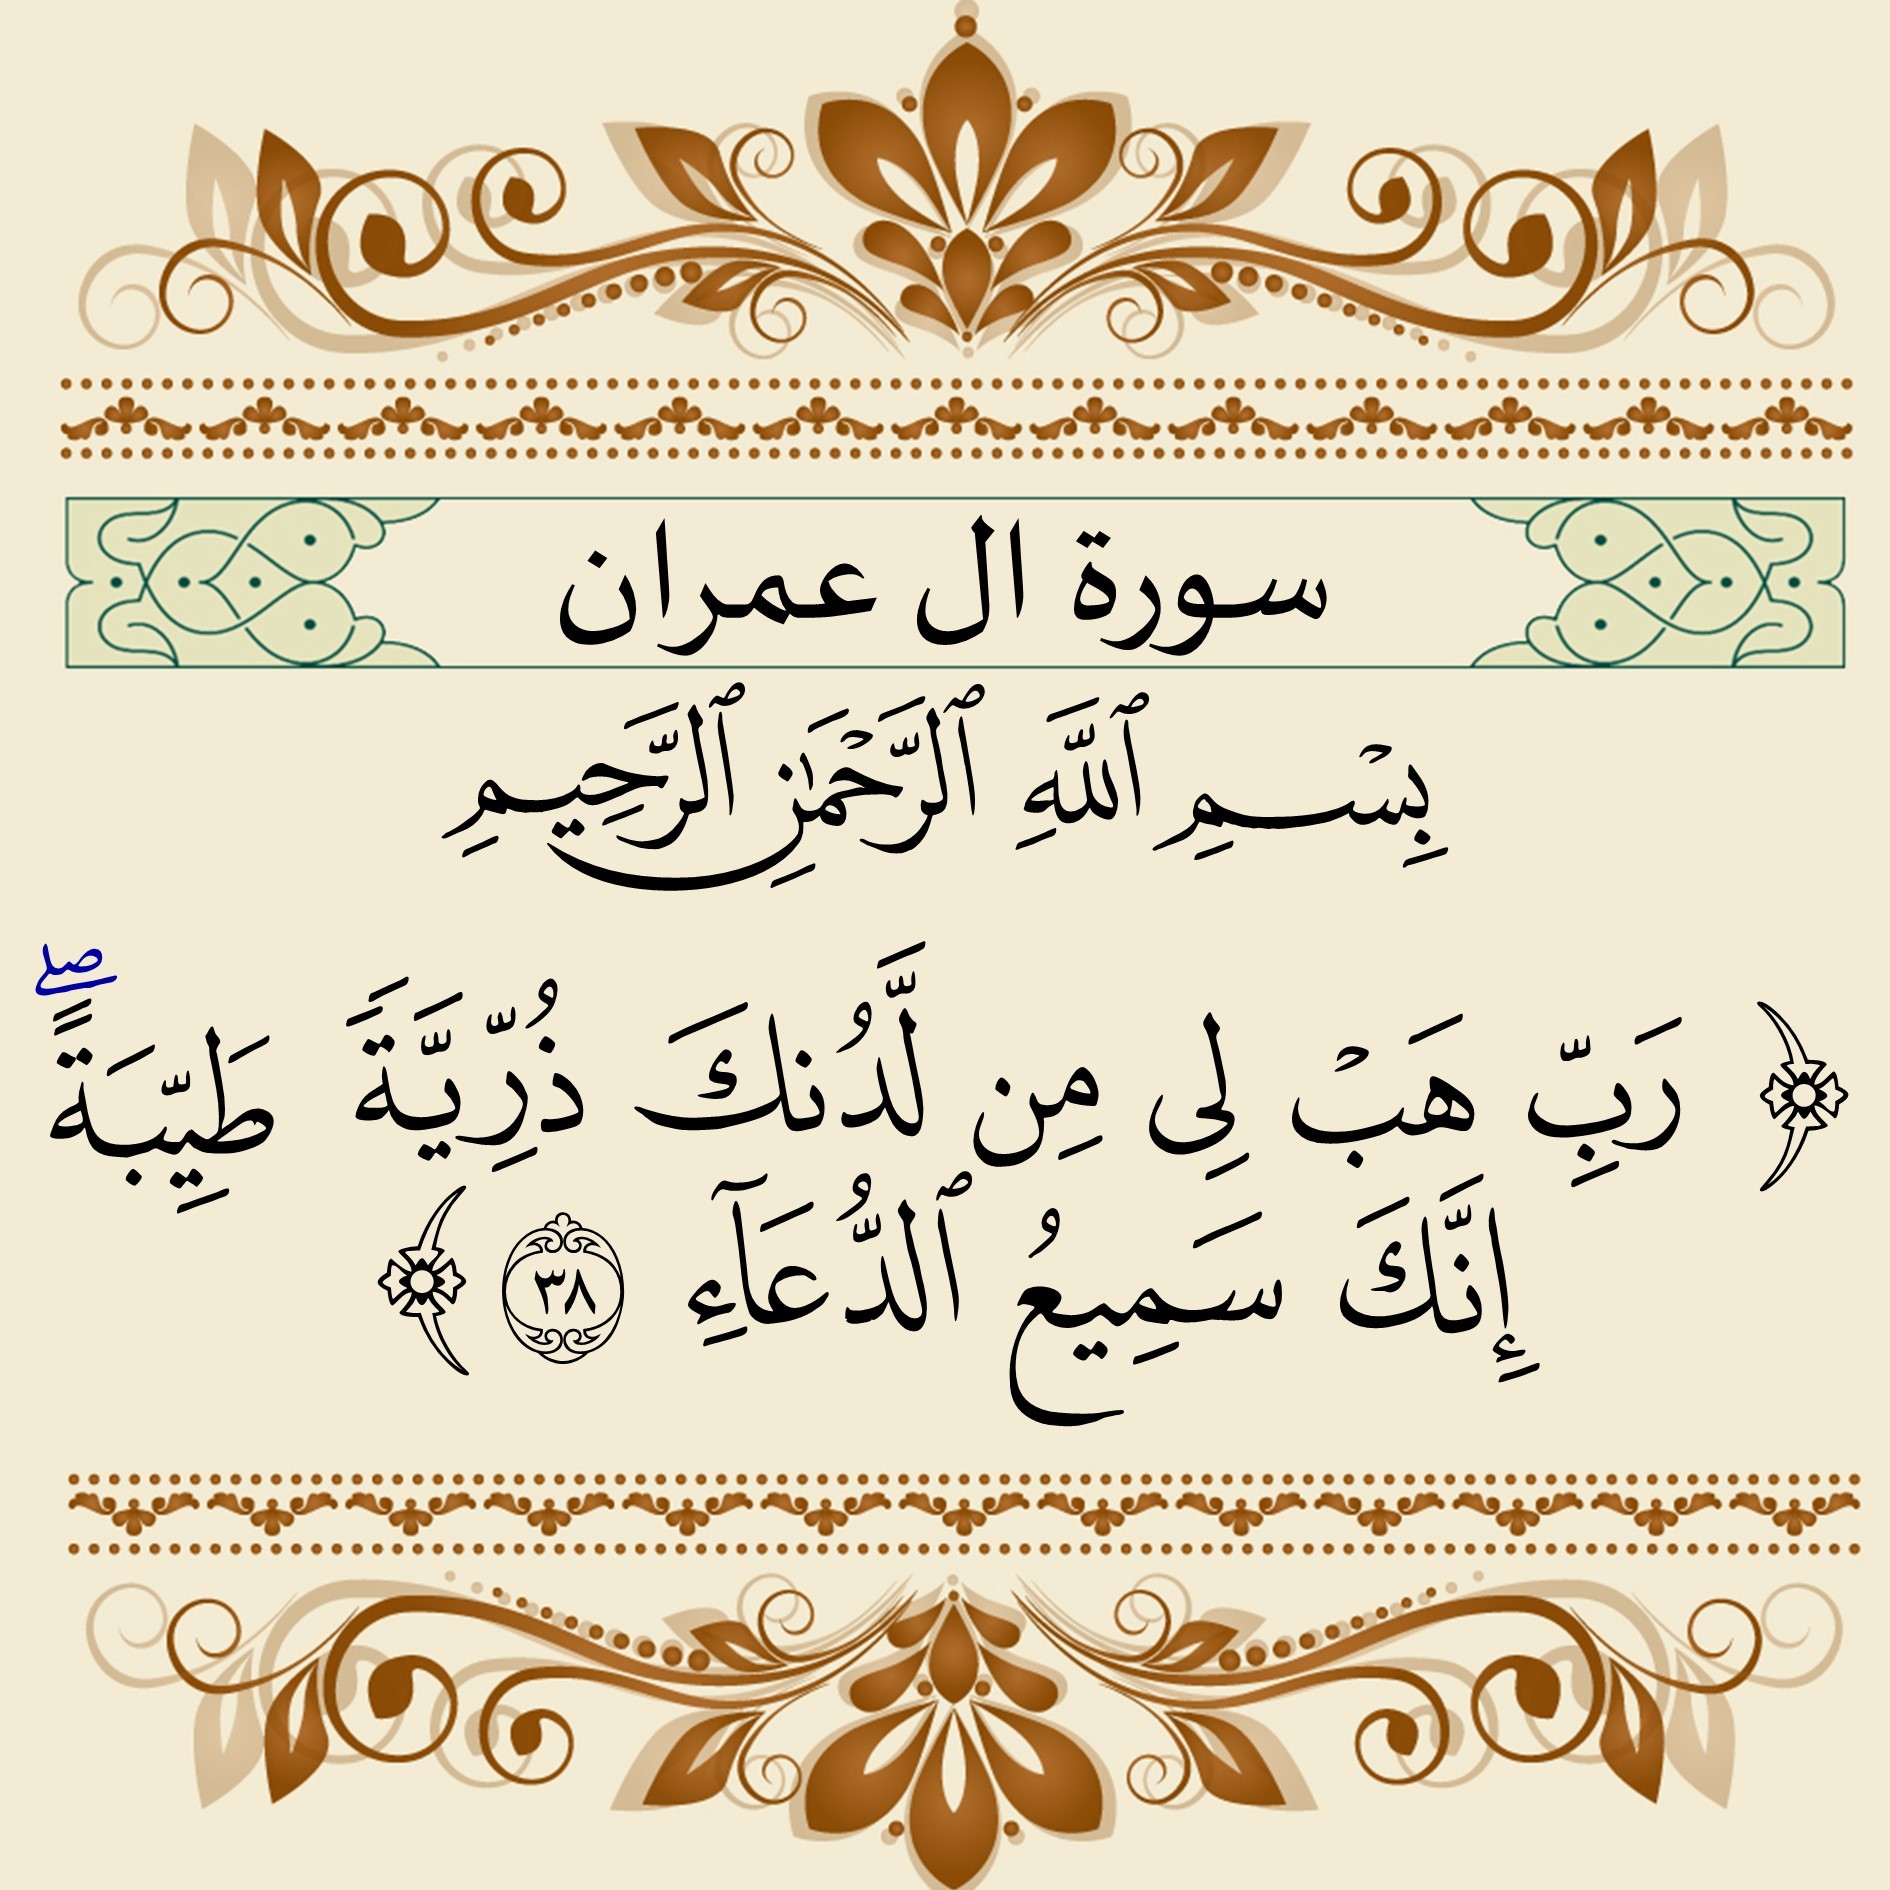 سورة ال عمران
بِسْمِ ٱللَّهِ ٱلرَّحْمَٰنِ ٱلرَّحِيمِ
﴿ رَبِّ هَبْ لِى مِن لَّدُنكَ ذُرِّيَّةًَ طَيِّبَةًۖ
إِنَّكَ سَمِيعُ ٱلدُّعَآءِ ٣٨ ﴾